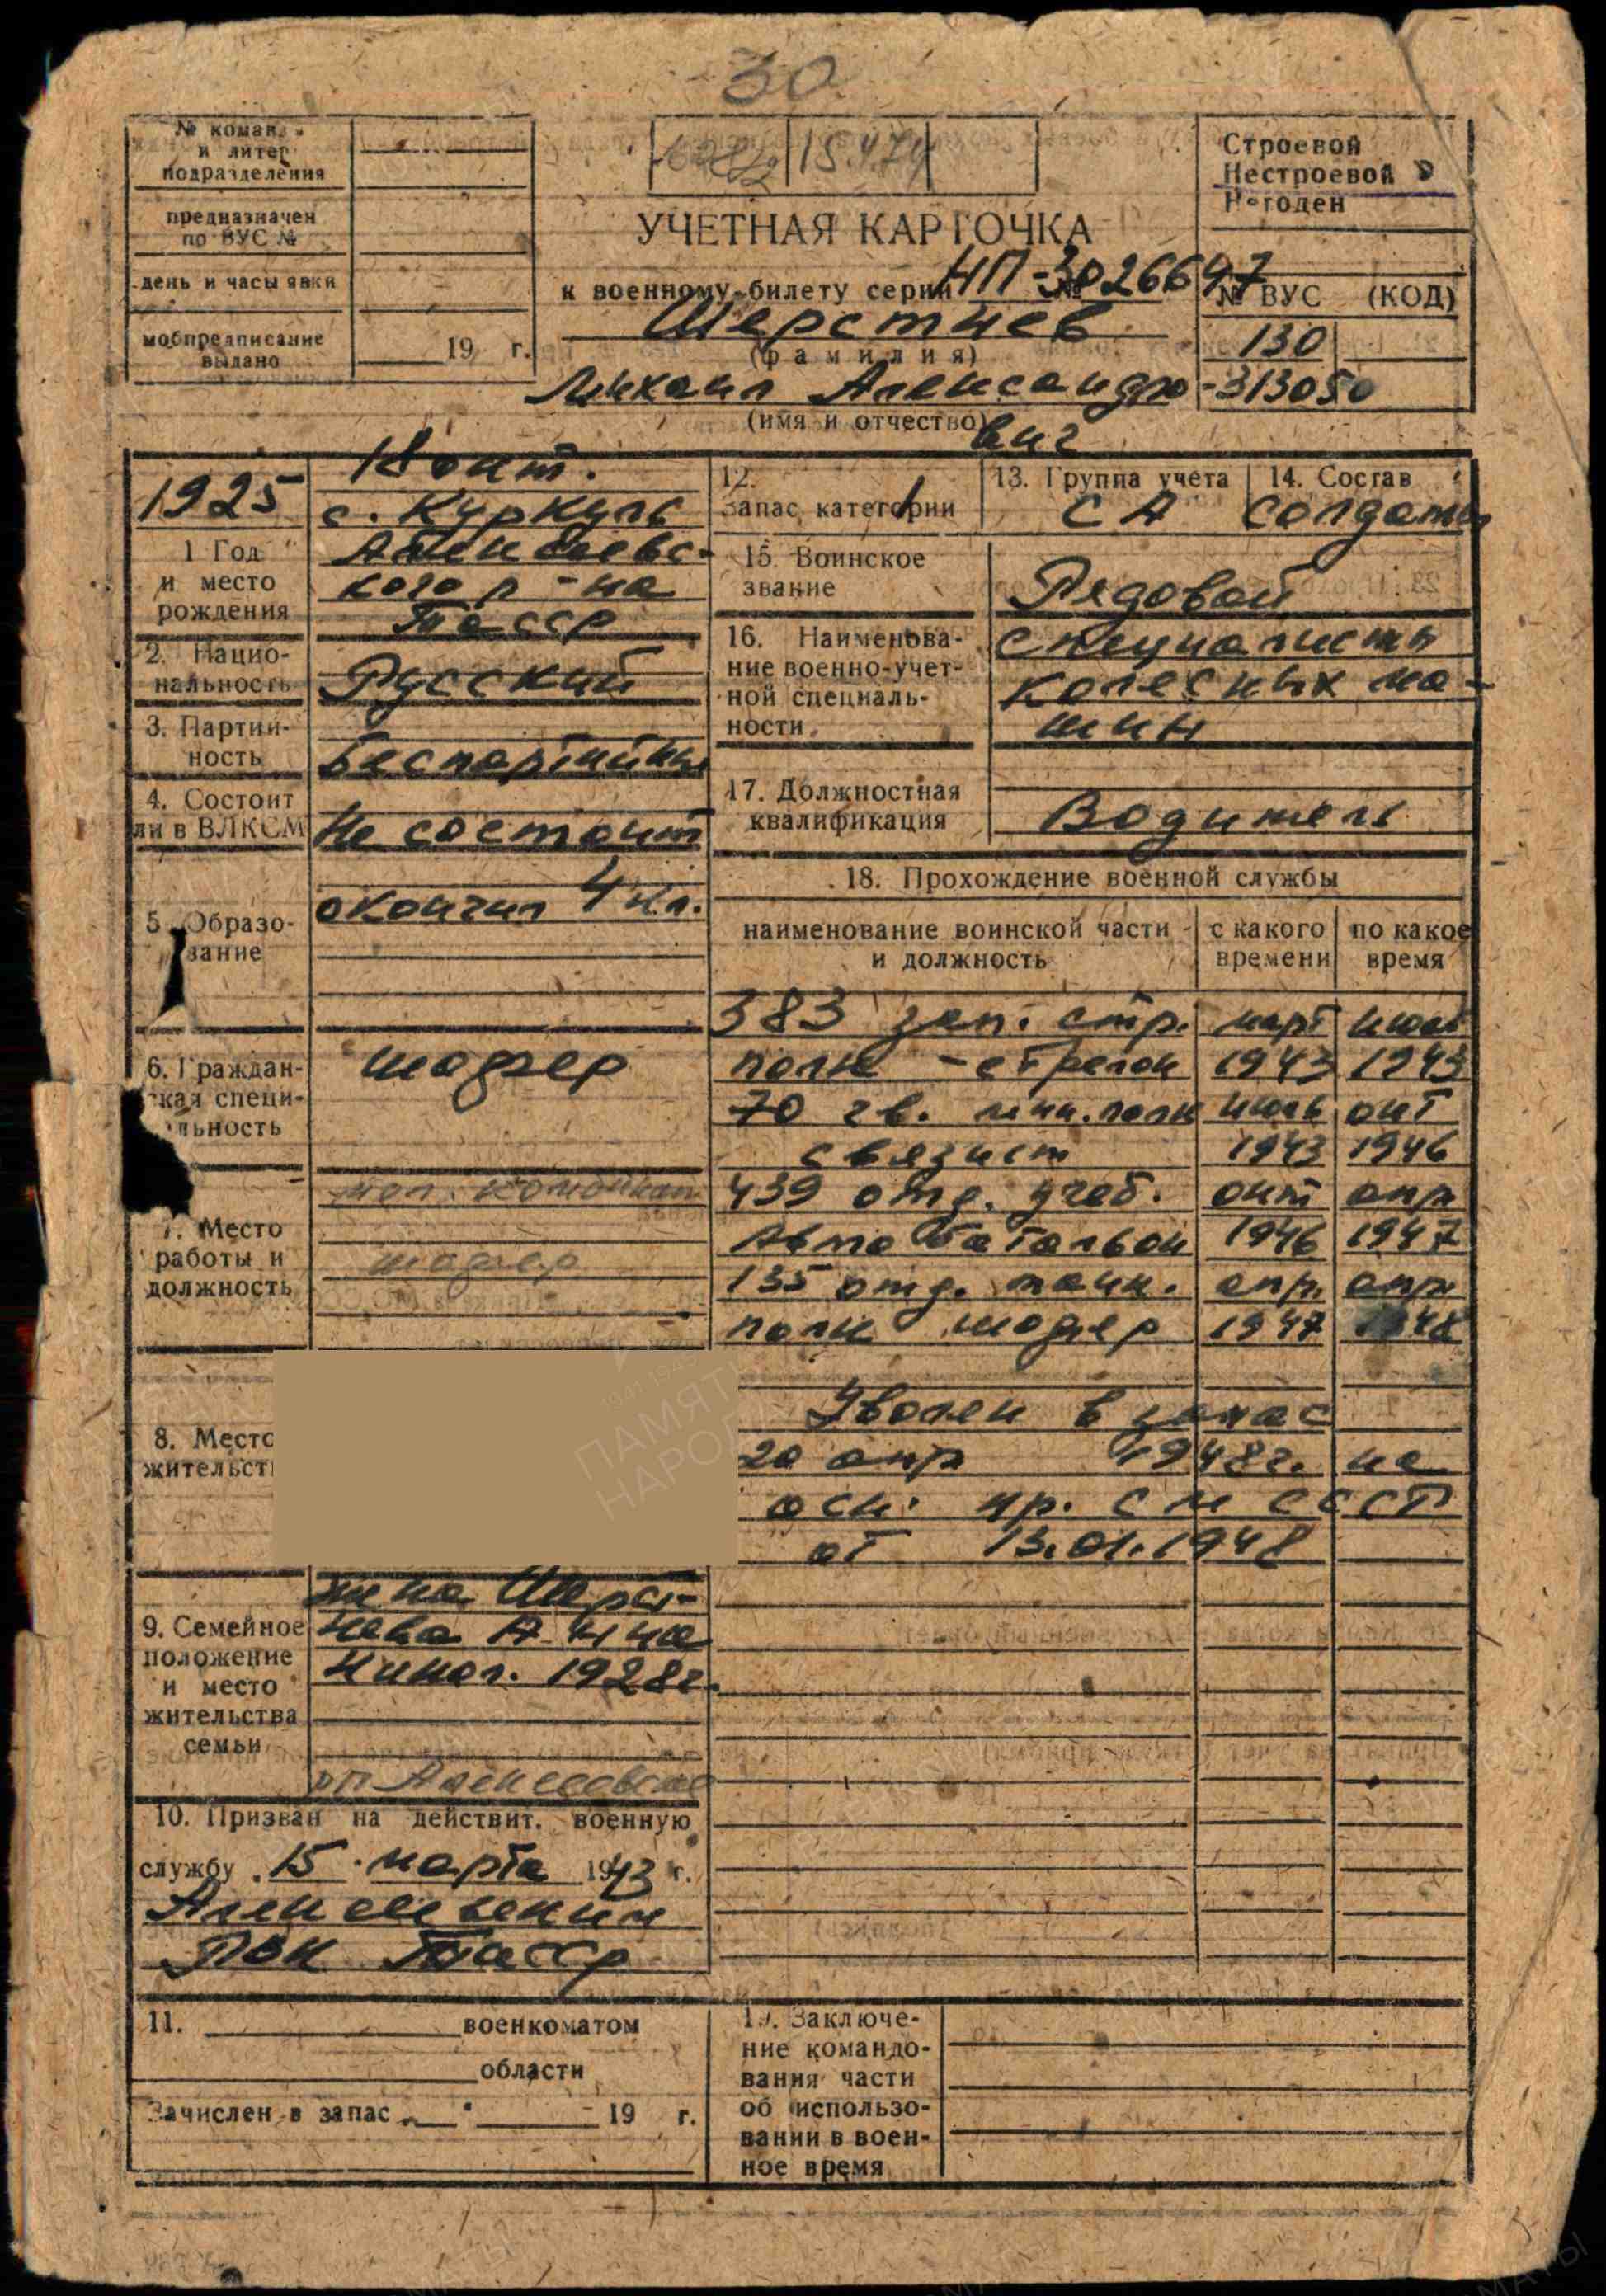 30
№ коман.
и литер
подразделения
предназначен
по ВУС №
день и часы явки
мобпредписание
выдано
19 г.
15.474
Строевой
Нестроевой
Не годен
УЧЕТНАЯ КАРТОЧКА
к военному билету серии НП-№ 3026697
№ ВУС (КОД)
Шерстнев
(фамилия)
130
Михаил Александро-
313050
(имя и отчество)
вич
1925
1 Год
и место
рождения
18 окт.
с. Куркуль
Алексеевс-
кого р-на
ТАССР
2. Нацио-
нальность
Русский
3. Партий-
ность
Беспартийный
4. Состоит
ли в ВЛКСМ
Не состоит
5. Образо-
вание
окончил 4 кл.
6. Граждан-
ская специ-
альность
шофер
7. Место
работы и
должность
мол. комбинат
шофер
8. Место
жительст
9. Семейное
положение
и место
жительства
семьи
жена Шерст-
нева Анна
Никол. 1928г.
рп Алексеевское
10. Призван на действит. военную
службу 15 марта 1943 г.
Алексеевским
РВК ТАССР
11. военкоматом
области
Зачислен в запас 19 г.
12.
Запас категории 1
13. Группа учета
СА
14. Состав
солдаты
15. Воинское
звание
Рядовой
16. Наименова-
ние военно-учет-
ной специаль-
ности
специалисты
колесных ма-
шин
17. Должностная
квалификация
Водитель
18. Прохождение военной службы
наименование воинской части
и должность
с какого
времени
по какое
время
383 зап. стр. март июль
полк - стрелок 1943 1943
70 гв. мин. полк июль окт
связист 1943 1946
439 отд. учеб. окт апр
Автобатальон 1946 1947
135 отд. танк. апр. апр
полк шофер 1947 1948
Уволен в запас
20 апр 1948г. на
осн. пр. СМ СССР
от 13.01.1948
19. Заключе-
ние командо-
вания части
об использо-
вании в воен-
ное время
ПАМЯТЬ
НАРОД